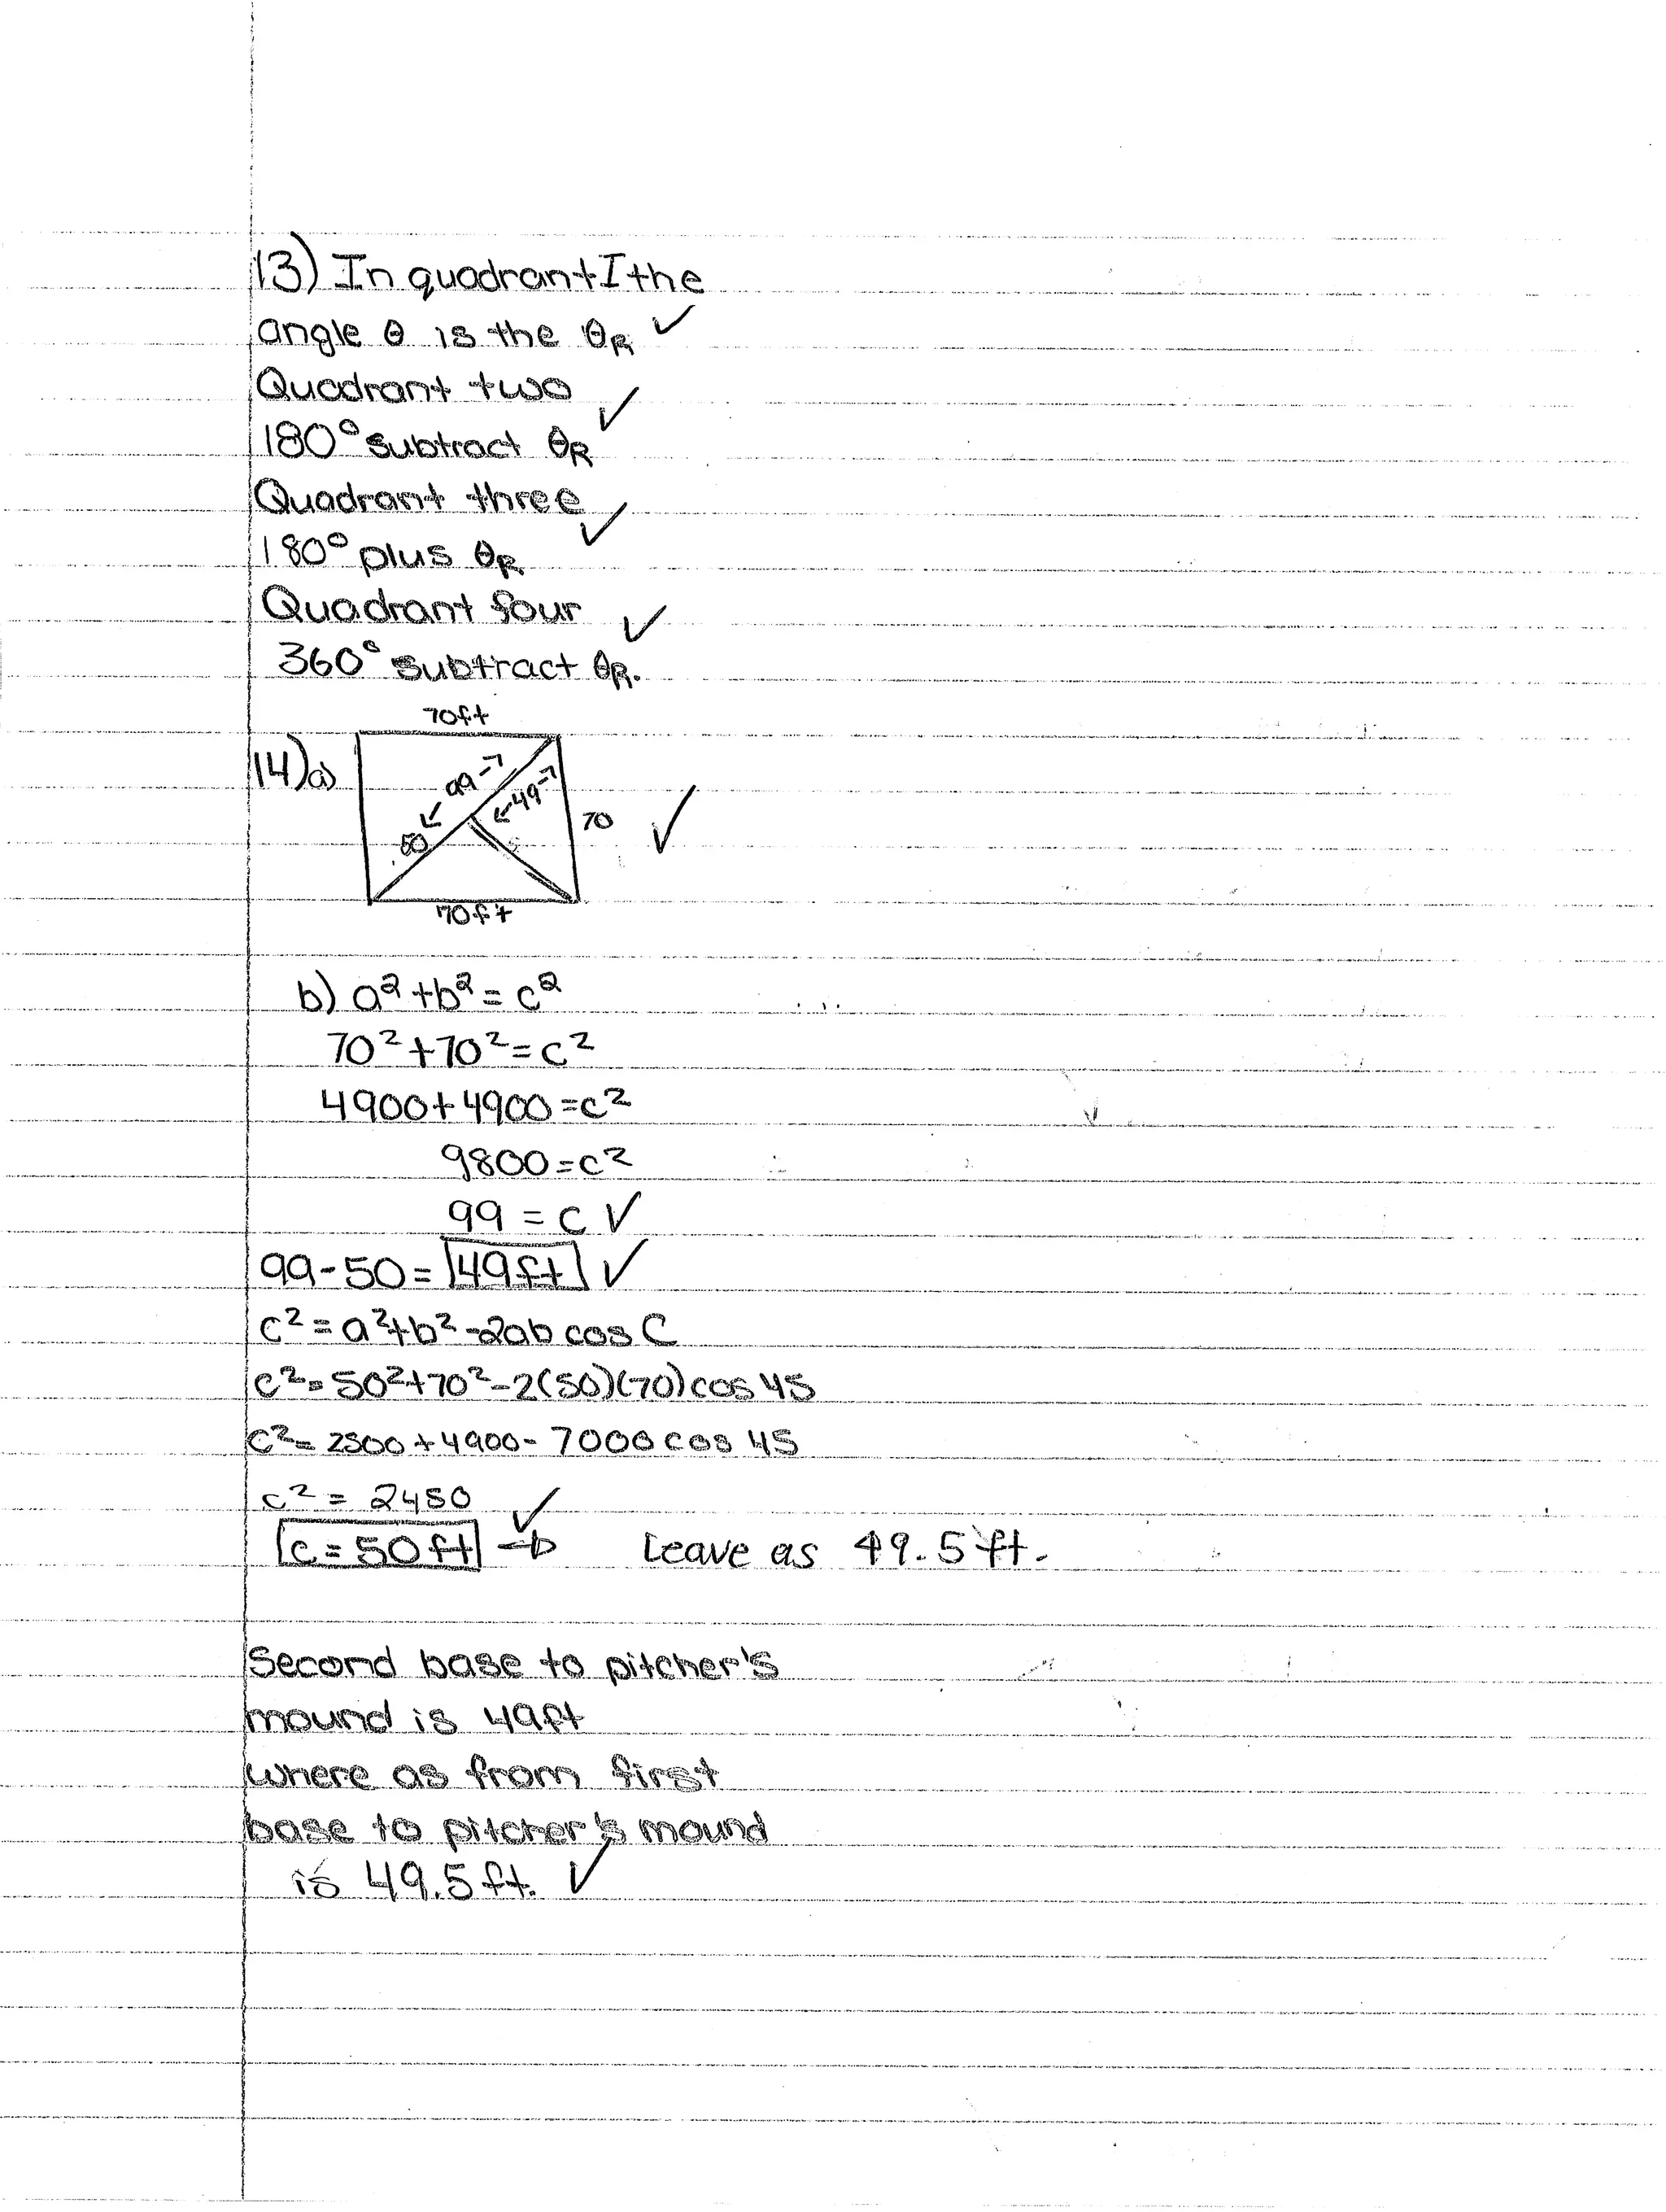 13) In quadrant I the
angle θ is the θR ✓
Quadrant two
180° subtract θR ✓
Quadrant three
180° plus θR ✓
Quadrant four
360° subtract θR. ✓
70ft
14)a)
← 99 →
← 49 →
50
70 ✓
70ft
b) a² + b² = c²
70² + 70² = c²
4900 + 4900 = c²
9800 = c²
99 = c ✓
99 - 50 = 49ft ✓
c² = a² + b² - 2ab cos C
c² = 50² + 70² - 2(50)(70) cos 45
c² = 2500 + 4900 - 7000 cos 45
c² = 2450 ✓
c = 50 ft → Leave as 49.5 ft.
Second base to pitcher's
mound is 49ft
where as from first
base to pitcher's mound
is 49.5 ft. ✓